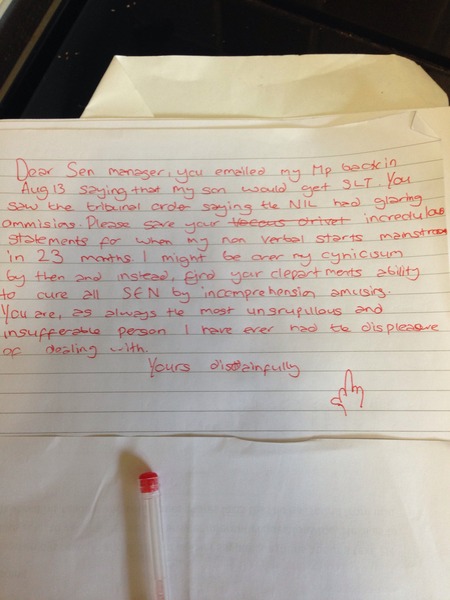 Dear Sen manager, you emailed my Mp back in
Aug 13 saying that my son would get SLT. You
saw the tribunal order saying the NIL had glaring
ommisions. Please save your vacous drivel incredulous
statements for when my non verbal starts mainstream
in 23 months. I might be over my cynicisum
by then and instead, find your departments ability
to cure all SEN by incomprehension amusing.
You are, as always the most unsrupulous and
insufferable person I have ever had the displeasure
of dealing with.
Yours disdainfully